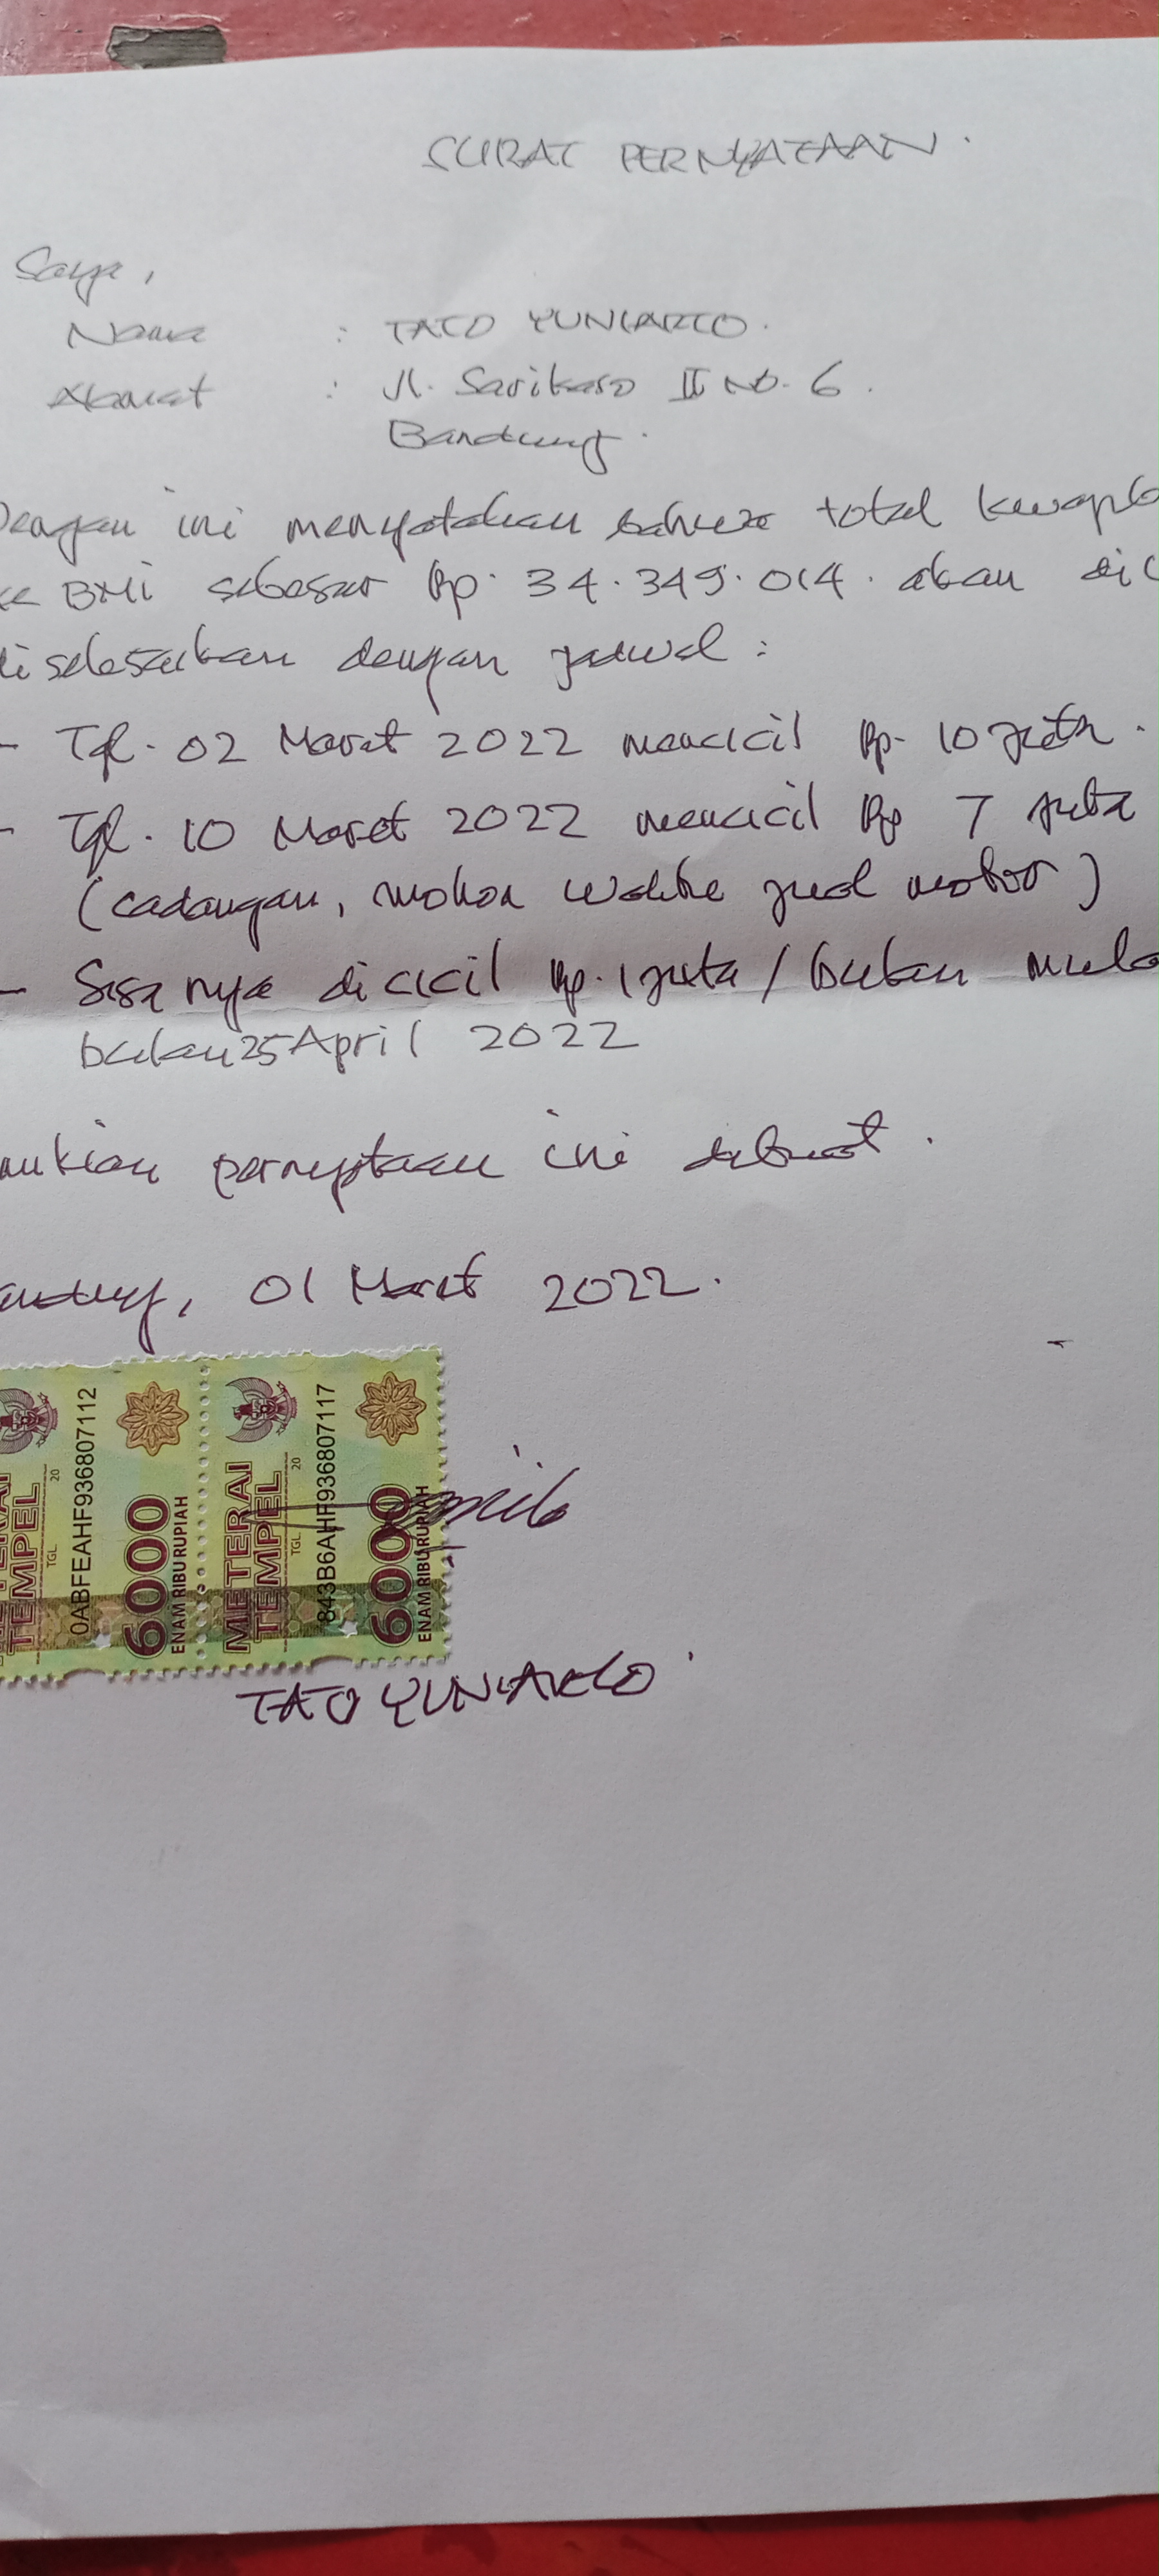 SURAT PERNYATAAN.
Saya,
Nama : TATO YUNIARTO.
Alamat : Jl. Sarikaso II No. 6.
Bandung.
Dengan ini menyatakan bahwa total kewajib
ke BMI sebesar Rp. 34.349.014. akan dic
diselesaikan dengan jadwal :
- Tgl. 02 Maret 2022 mencicil Rp. 10 juta.
- Tgl. 10 Maret 2022 mencicil Rp 7 juta
(cadangan, mohon waktu jual motor)
- Sisanya dicicil Rp. 1 juta / bulan mula
bulan 25 April 2022
mukian pernyataan ini dibuat.
andung, 01 Maret 2022.
METERAI TEMPEL
TGL 20
0ABFEAHF936807112
6000
ENAM RIBU RUPIAH
METERAI TEMPEL
TGL 20
843B6AHF936807117
6000
ENAM RIBU RUPIAH
TATO YUNIARTO